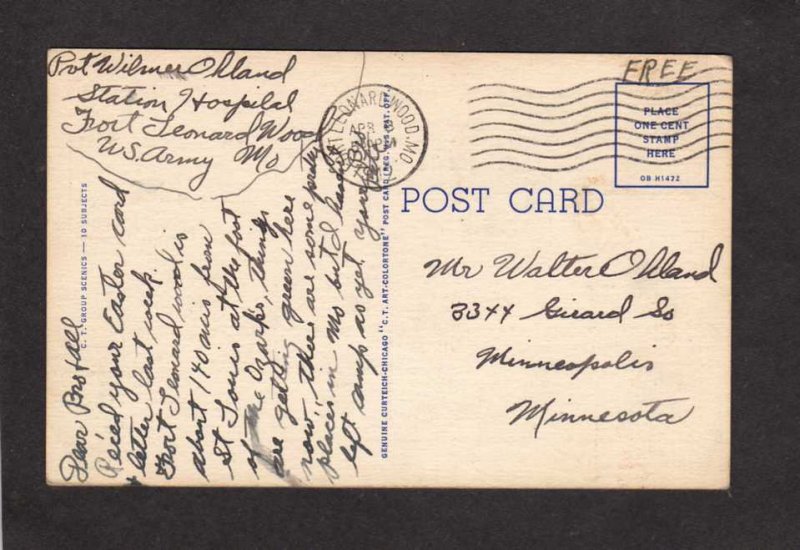 Pvt Wilmer Ohland
Station Hospital
Fort Leonard Wood
U.S. Army Mo
FORT LEONARD WOOD, MO.
APR
FREE
PLACE
ONE CENT
STAMP
HERE
OB H1472
POST CARD
Mr Walter Ohland
3344 Girard So
Minneapolis
Minnesota
Dear Bro & all
Rec'ed your Easter card
& letter last week.
Fort Leonard wood is
about 140 miles from
St Louis at the foot
of the Ozarks, things
are getting green here
now, there are some pretty
places in Mo but I haven't
left camp as yet your
Bro
C. T. GROUP SCENICS — 10 SUBJECTS
GENUINE CURTEICH-CHICAGO "C. T. ART-COLORTONE" POST CARD (REG. U.S. PAT. OFF.)